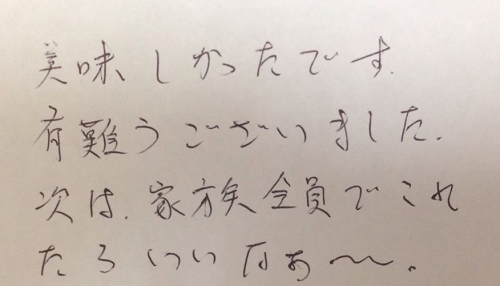 美味しかったです.
有難うございました.
次は、家族全員でこれ
たらいいなぁ〜〜。